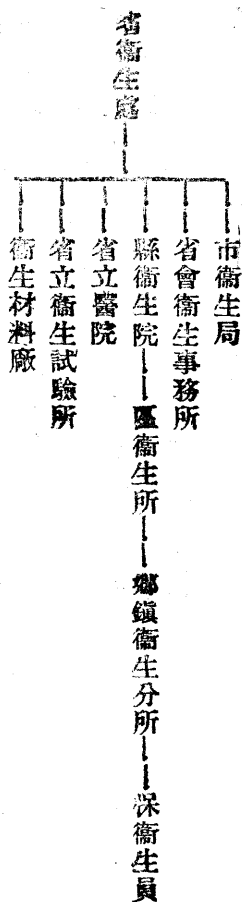 省衞生處
市衞生局
省會衞生事務所
縣衞生院——區衞生所——鄉鎮衞生分所——保衞生員
省立醫院
省立衞生試驗所
衞生材料廠